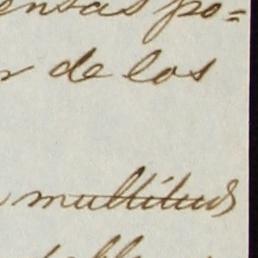 ensas po=
r de los
multitud